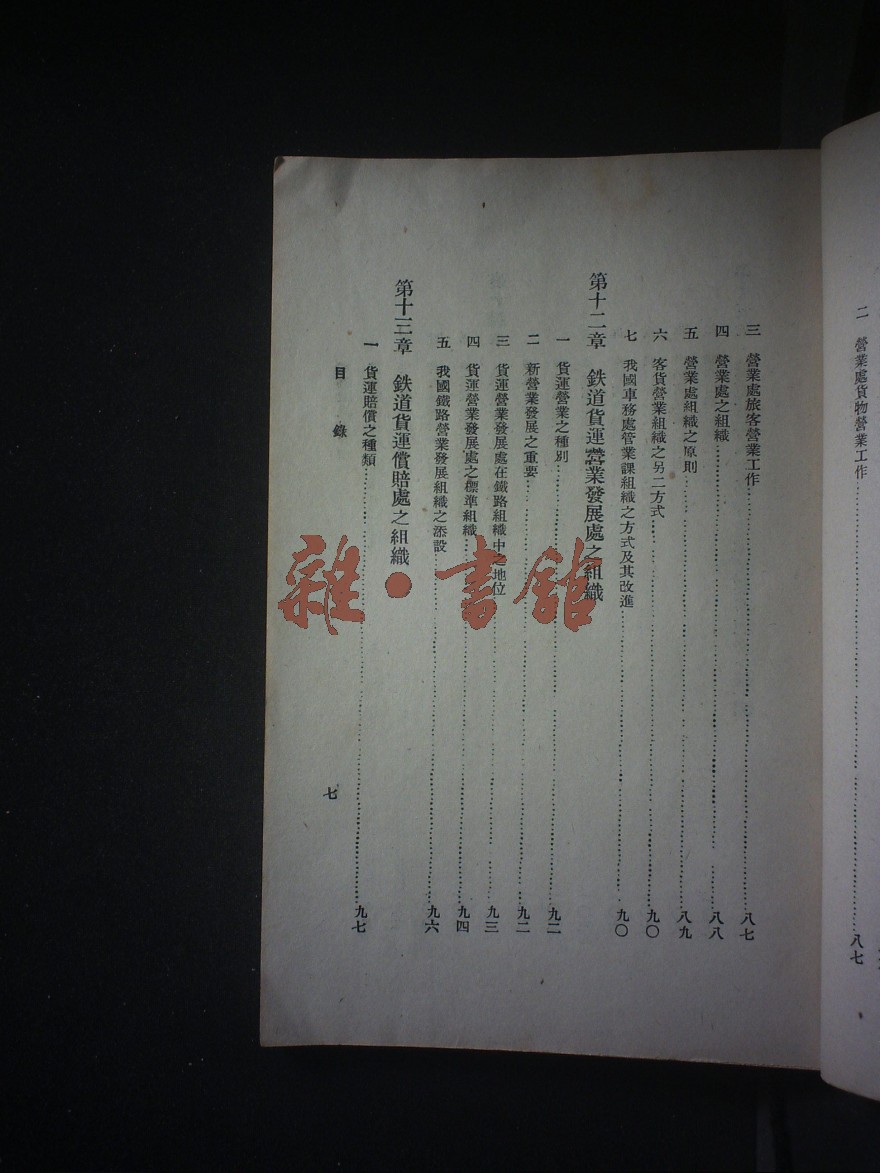 二　營業處貨物營業工作……八七
三　營業處旅客營業工作……八七
四　營業處之組織……八八
五　營業處組織之原則……八九
六　客貨營業組織之另二方式……九〇
七　我國車務處管業課組織之方式及其改進……九〇
第十二章　鉄道貨運營業發展處之組織
一　貨運營業之種別……九二
二　新營業發展之重要……九二
三　貨運營業發展處在鐵路組織中之地位……九三
四　貨運營業發展處之標準組織……九四
五　我國鐵路營業發展組織之添設……九六
第十三章　鉄道貨運償賠處之組織
一　貨運賠償之種類……九七
目　錄
七
雜·書館